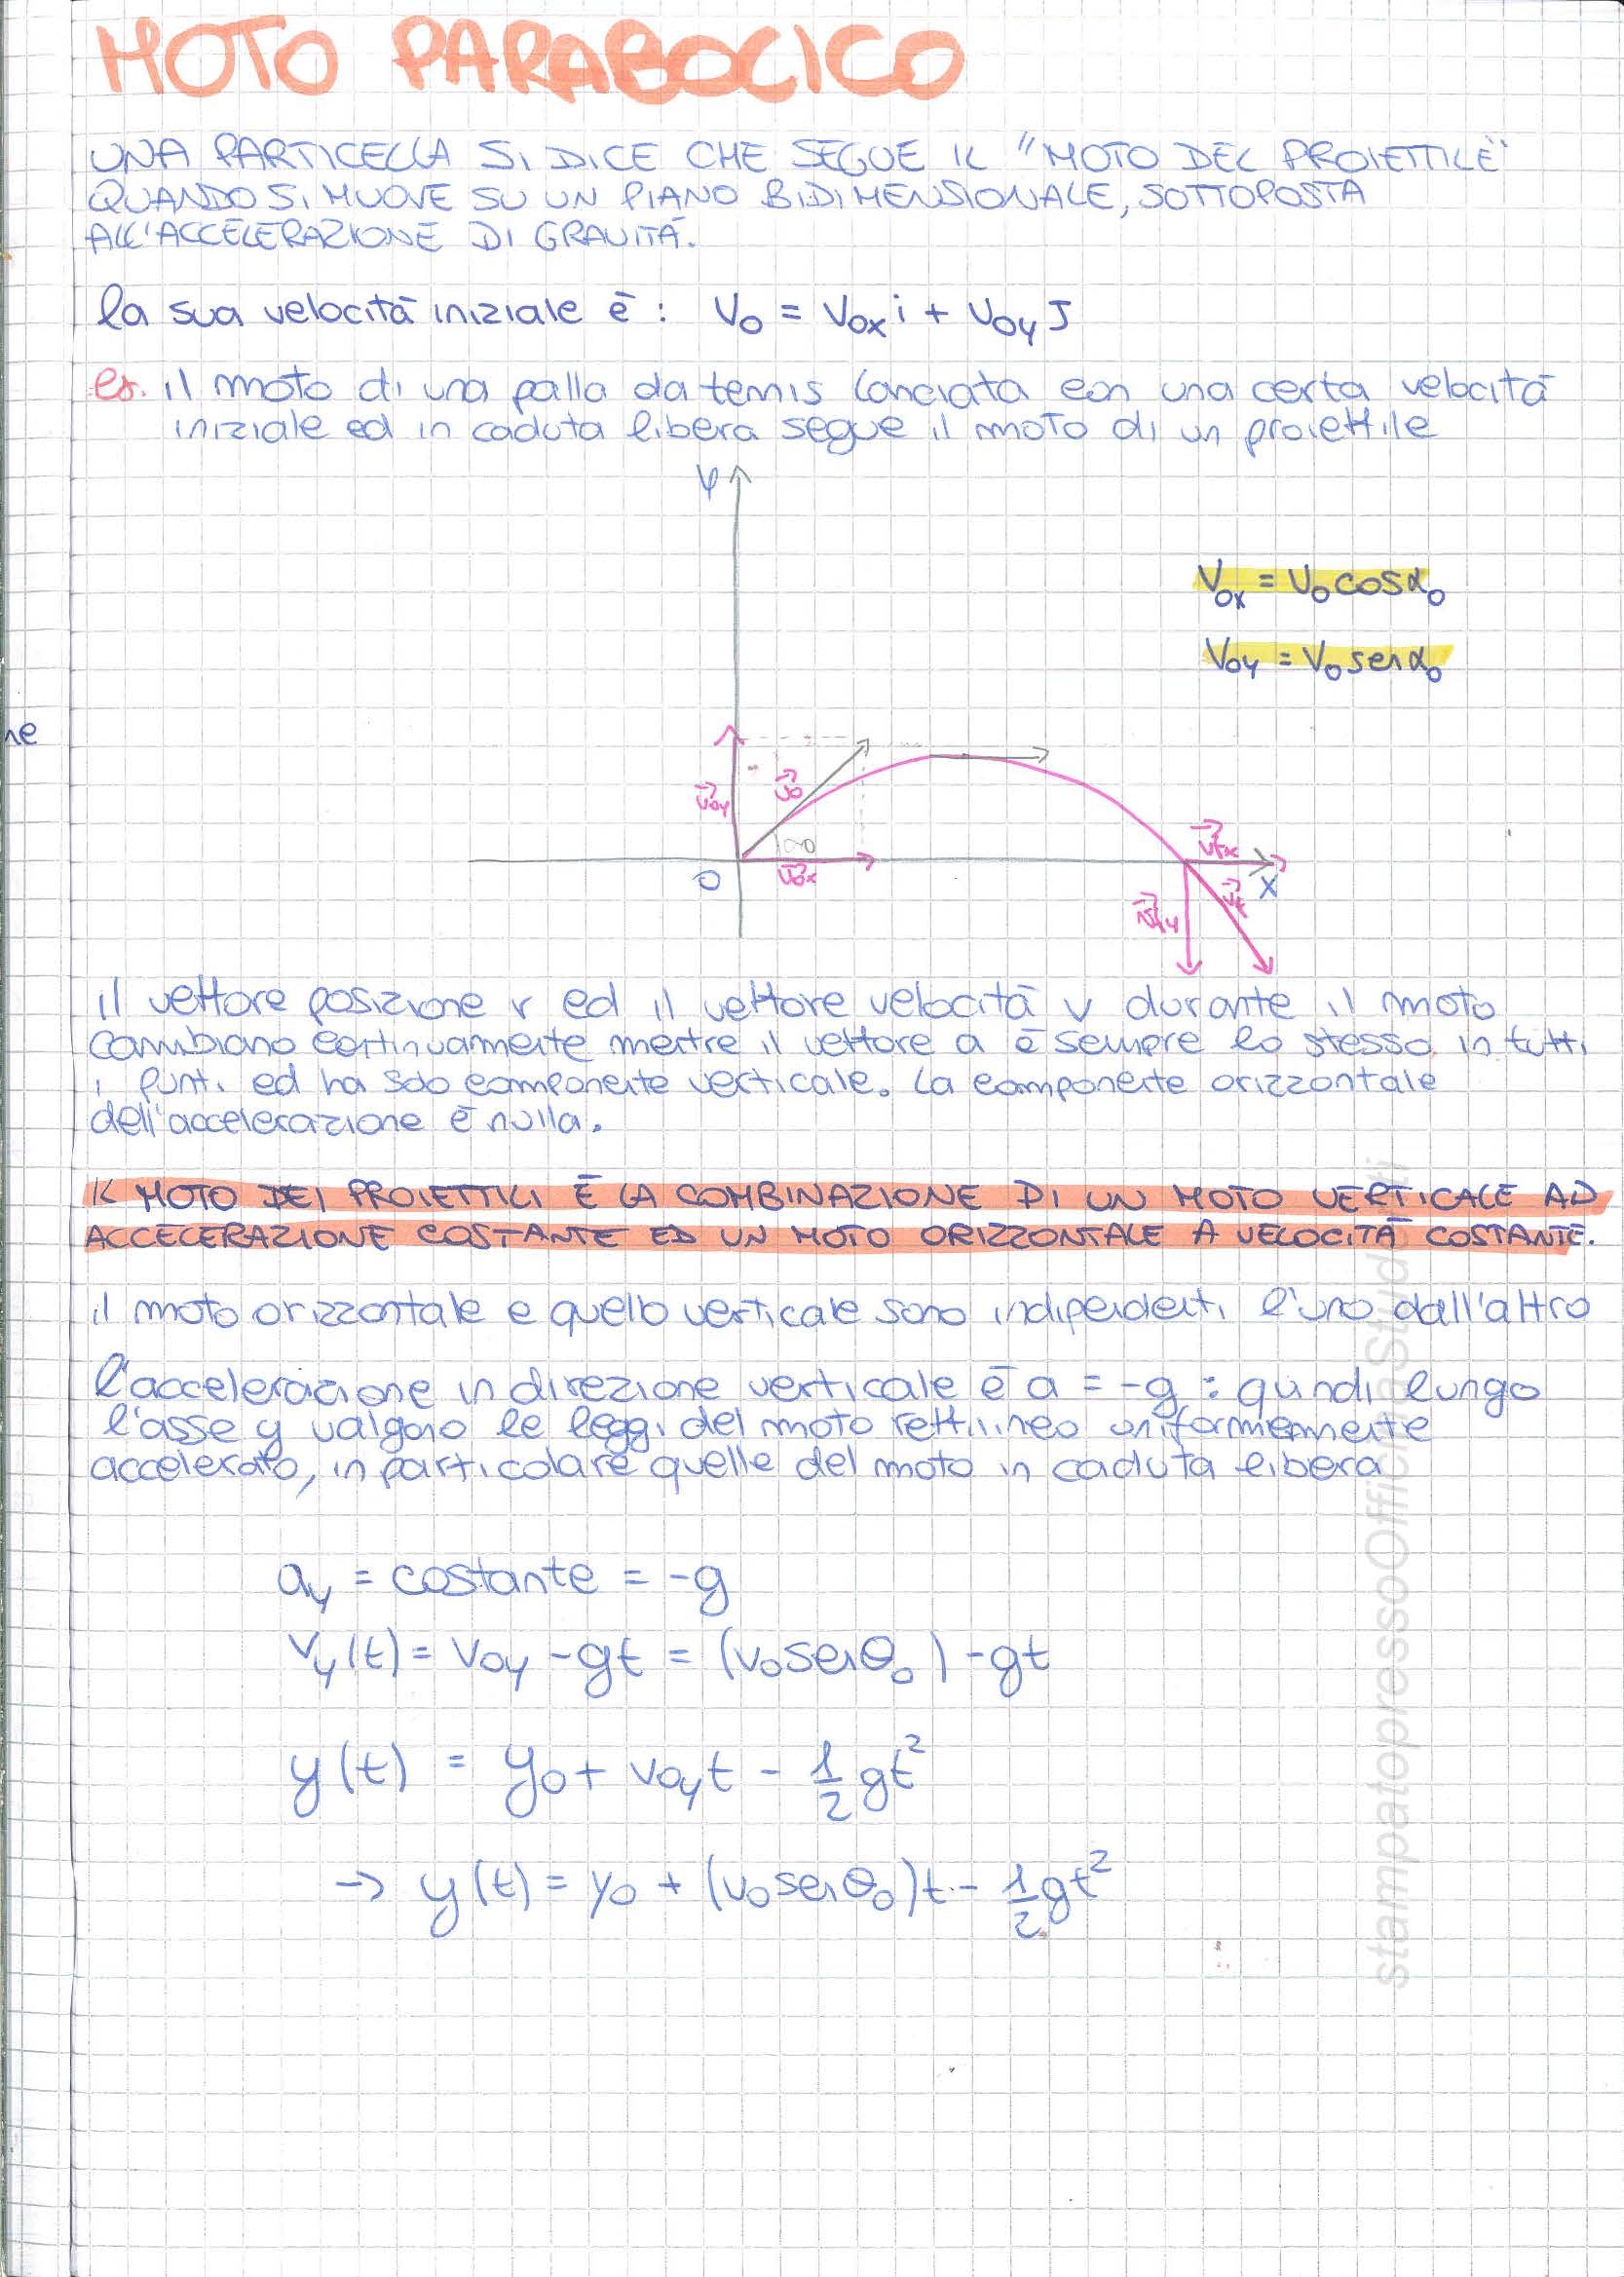 MOTO PARABOLICO
UNA PARTICELLA SI DICE CHE SEGUE IL "MOTO DEL PROIETTILE"
QUANDO SI MUOVE SU UN PIANO BIDIMENSIONALE, SOTTOPOSTA
ALL'ACCELERAZIONE DI GRAVITÀ.
la sua velocità iniziale è: V₀ = V₀ₓ i + V₀y J
es. il moto di una palla da tennis lanciata con una certa velocità
iniziale ed in caduta libera segue il moto di un proiettile
y
V₀ₓ = V₀ cos α₀
V₀y = V₀ sen α₀
ne
v⃗₀y
v⃗₀
α₀
v⃗fx
O
v⃗₀ₓ
X
v⃗fy
v⃗f
il vettore posizione r ed il vettore velocità v durante il moto
cambiano continuamente mentre il vettore a è sempre lo stesso in tutti
i punti ed ha solo componente verticale. La componente orizzontale
dell'accelerazione è nulla.
IL MOTO DEI PROIETTILI È LA COMBINAZIONE DI UN MOTO VERTICALE AD
ACCELERAZIONE COSTANTE ED UN MOTO ORIZZONTALE A VELOCITÀ COSTANTE.
il moto orizzontale e quello verticale sono indipendenti l'uno dall'altro
l'accelerazione in direzione verticale è a = -g : quindi lungo
l'asse y valgono le leggi del moto rettilineo uniformemente
accelerato, in particolare quelle del moto in caduta libera
ay = costante = -g
vy(t) = v₀y - gt = (v₀ sen θ₀) - gt
y(t) = y₀ + v₀y t - 1/2 gt²
→ y(t) = y₀ + (v₀ sen θ₀)t - 1/2 gt²
stampatopressoOfficinaStudenti